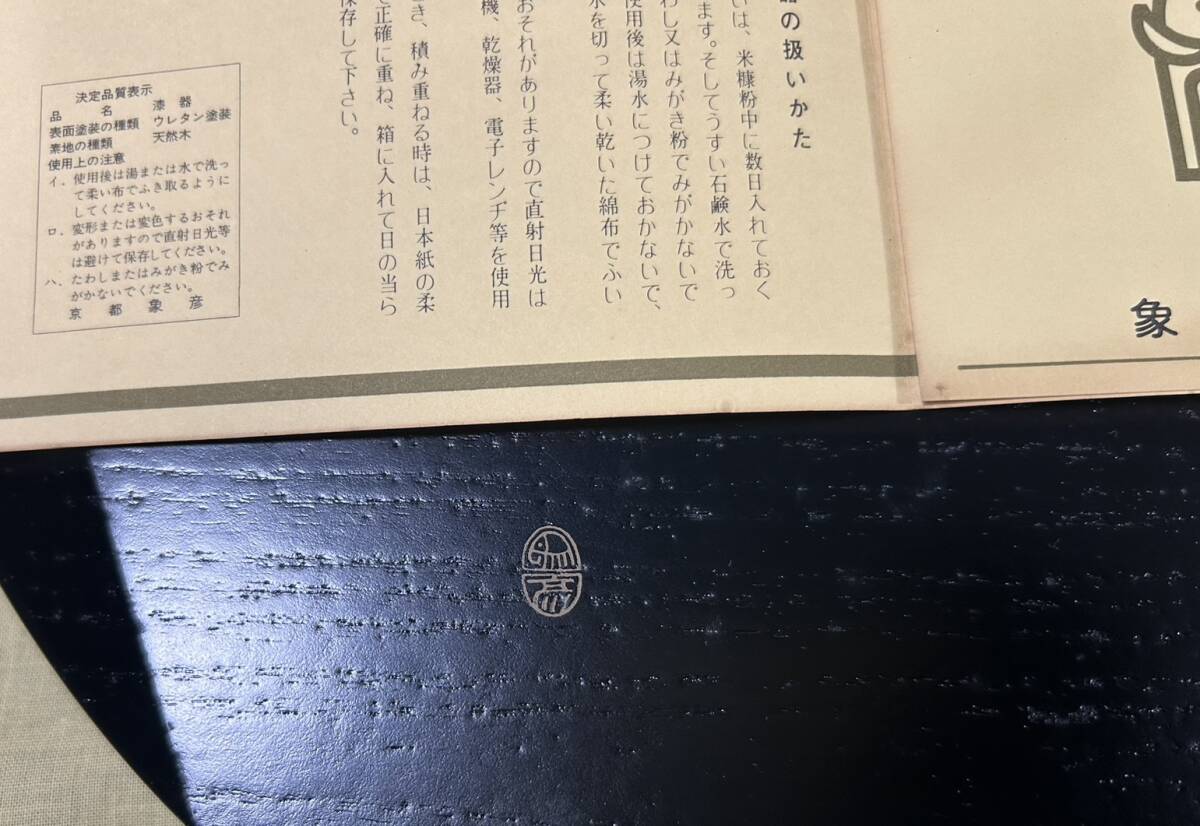 象
器の扱いかた
いは、米糠粉中に数日入れておく
ます。そしてうすい石鹸水で洗っ
わし又はみがき粉でみがかないで
使用後は湯水につけておかないで、
水を切って柔い乾いた綿布でふい
おそれがありますので直射日光は
機、乾燥器、電子レンヂ等を使用
き、積み重ねる時は、日本紙の柔
正確に重ね、箱に入れて日の当ら
保存して下さい。
決定品質表示
品名 漆器
表面塗装の種類 ウレタン塗装
素地の種類 天然木
使用上の注意
イ、使用後は湯または水で洗っ
て柔い布でふき取るように
してください。
ロ、変形または変色するおそれ
がありますので直射日光等
は避けて保存してください。
ハ、たわしまたはみがき粉でみ
がかないでください。
京都 象彦